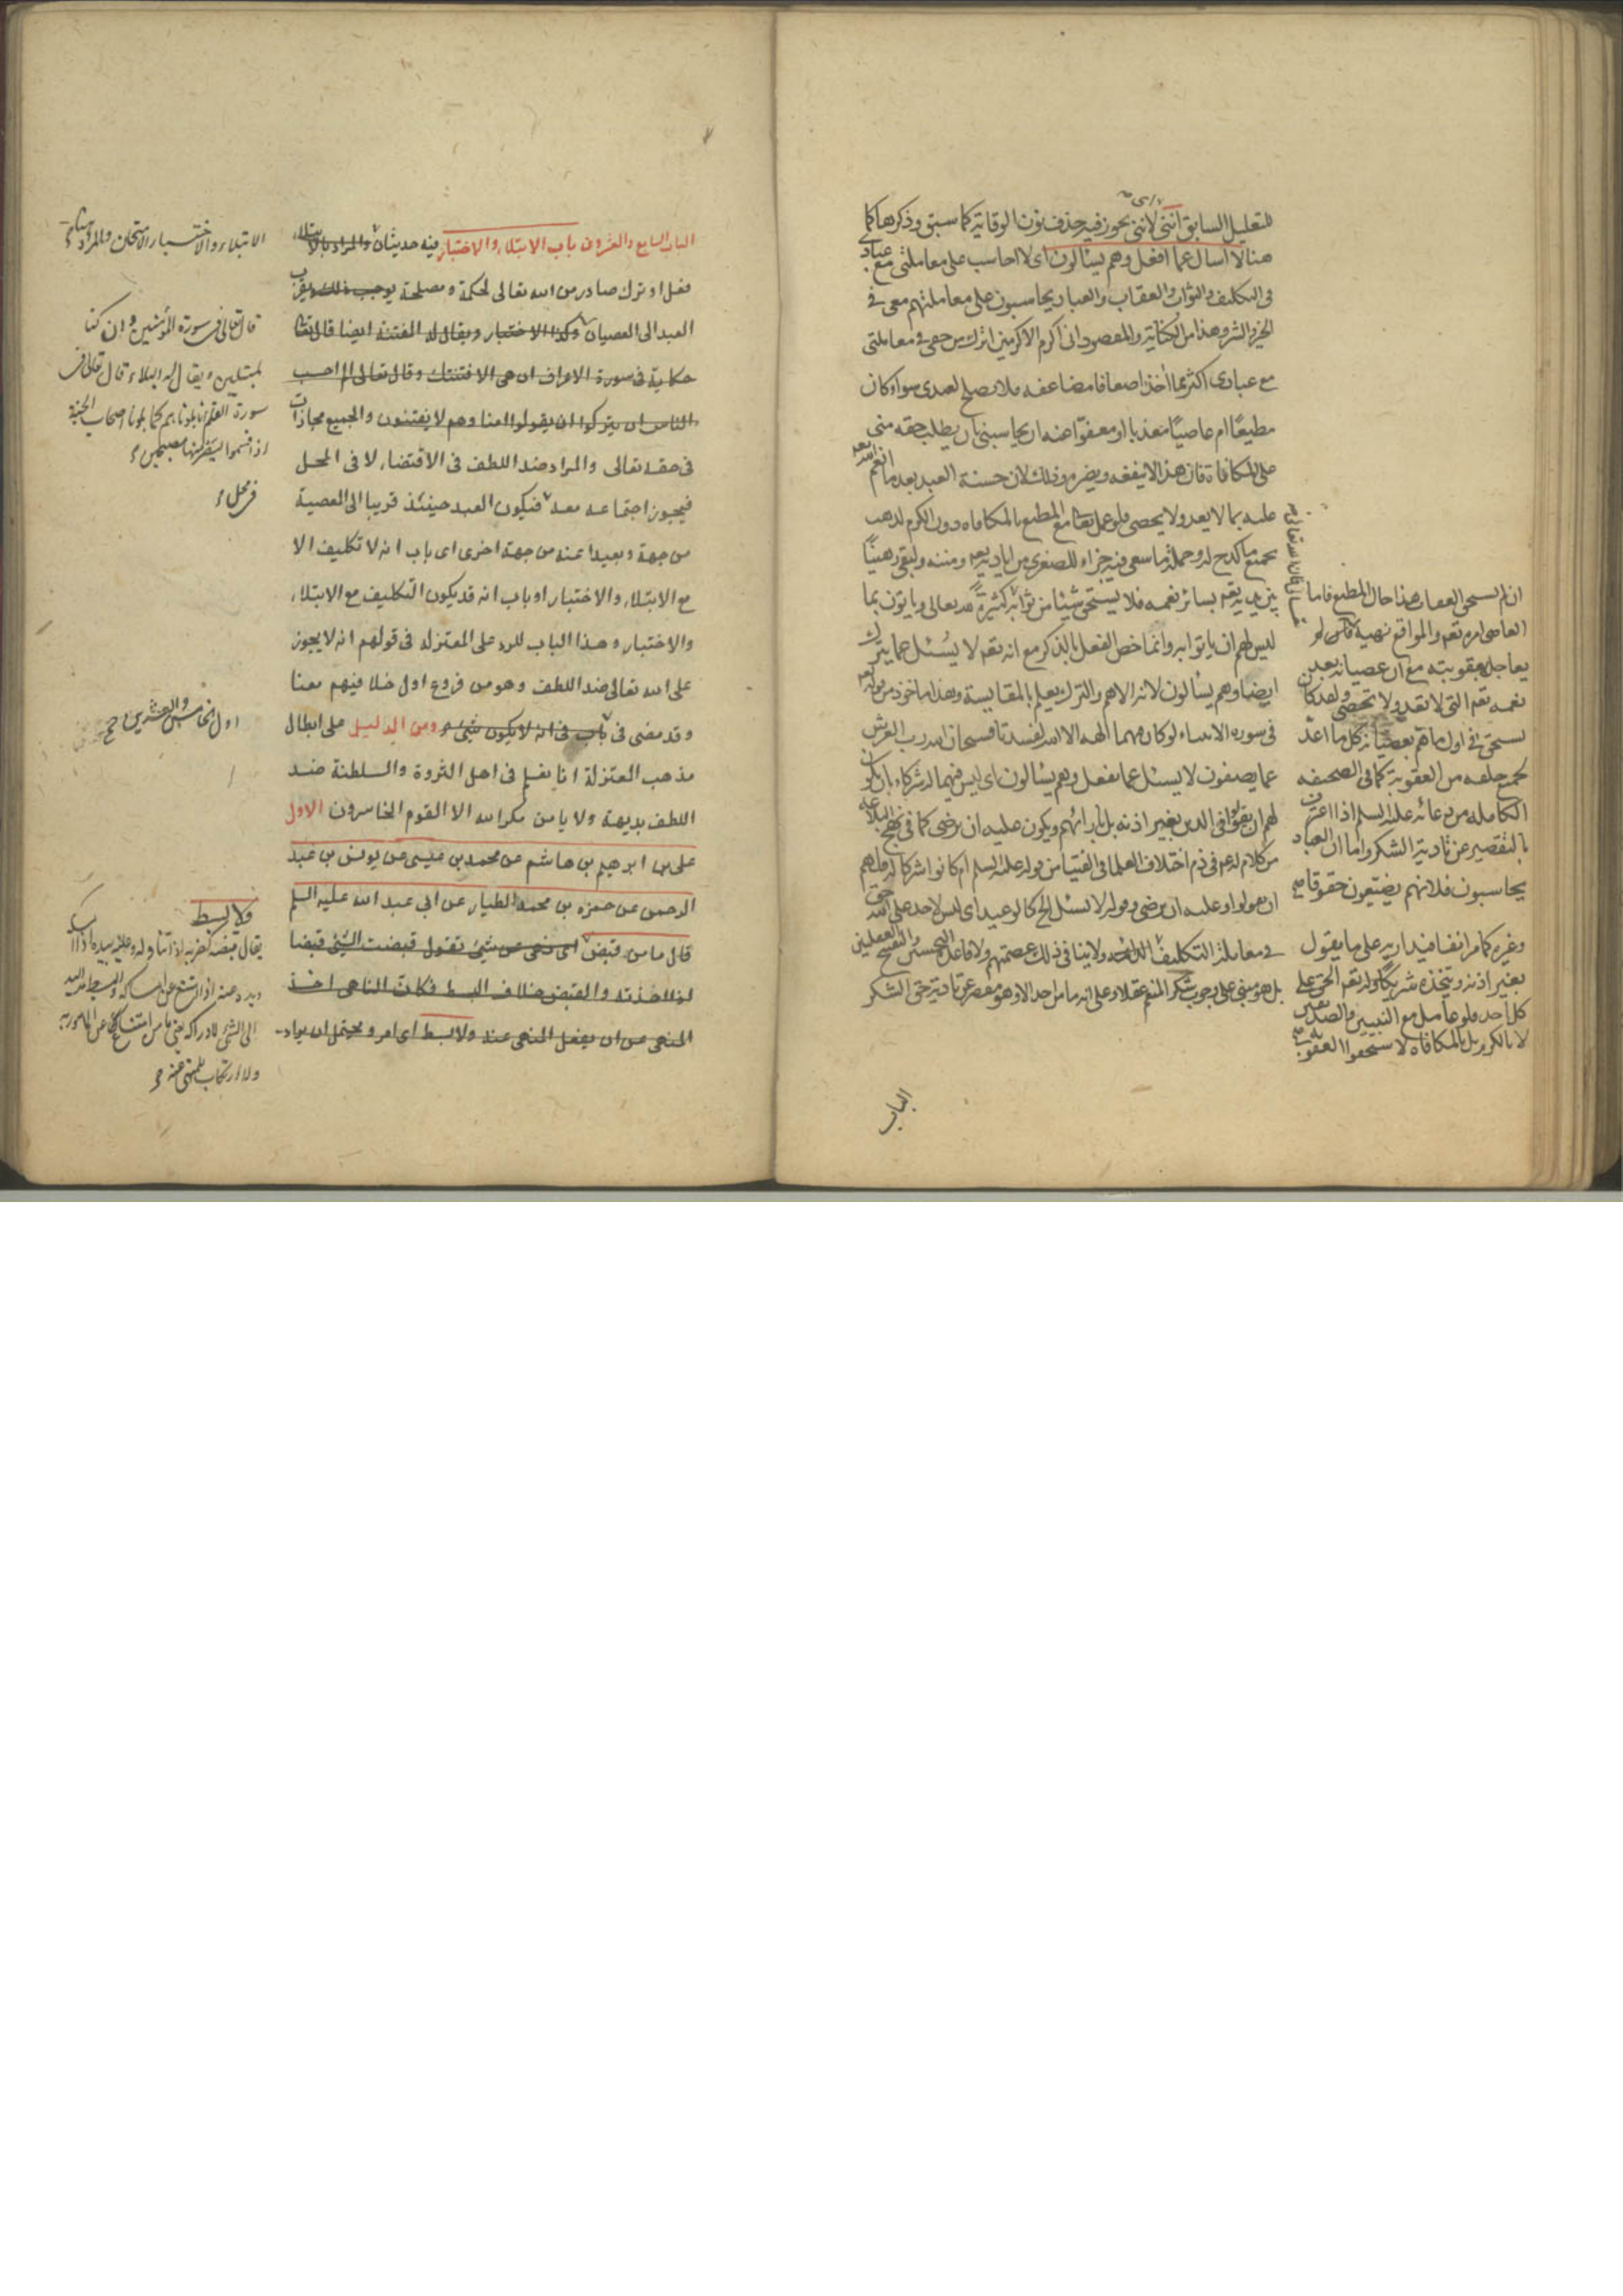 للتعليل السابق انني لانني يجوز فيه حذف نون الوقاية كما سبق وذكرها كما
هنا لا اسال عما افعل وهم يسألون اي لا احاسب على معاملتي مع عبادي
في التكليف والثواب والعقاب والعباد يحاسبون على معاملتهم معي في
الخير والشر وهذا من الكناية والمقصود اني اكرم الاكرمين اترك من حقي في معاملتي
مع عبادي اكثر مما أخذ اضعافا مضاعفه فلا يصلح لعبدي سواء كان
مطيعًا ام عاصيًا معذبا او معفوّا عنه ان يحاسبني بان يطلب حقه مني
على المكافاة فان هذا لا ينفعه ويضره وذلك لان حسنة العبد بعد ما انعم الله
عليه بما لا يعد ولا يحصى فلو عمل تعالى مع المطيع بالمكافاه دون الكرم لذهب
بجميع ما كدح له وجملة ما سعى فيه جزاء للصغرى من اياديه ومننه ولبقي رهينًا
بين يديه تعالى بسائر نعمه فلا يستحق شيئا من ثوابه
ليس لهم ان ياتوا به وانما خص الفعل بالذكر مع انه تعم لا يُسئل عما يترك
ايضا وهم يسألون لانه الاهم والترك يعلم بالمقايسة وهذا ماخوذ من قوله تعم
في سوره الانبياء لو كان فيهما آلهه الا الله لفسدتا فسبحان الله رب العرش
عما يصفون لا يسئل عما يفعل وهم يسئالون اي ليس فيهما له شركاء بان يكون
لهم ان يقولوا في الدين بغير اذنه بل بارائهم ويكون عليه ان يرضى كما في نهج البلاغه
من كلام له عم في ذم اختلاف العلما في الفتيا من قوله عليه السلم ام كانوا شركاء له فلهم
ان يقولوا وعليه ان يرضى وقوله لا يسئل الخ كالوعيد اي ليس لاحد على الله حق
في معاملة التكليف ولا ينافي ذلك عصمتهم ولا قاعدة التحسين والتقبيح العقليين
بل هو مبني على وجوب شكر المنعم عقلا وعلى انه ما من احد الا وهو مقصر عن تادية حق الشكر
ان لم يستحق العقاب هذا حال المطيع فاما
العاصي امره تعم والمواقع نهيه فلو
يعاجله بعقوبته مع ان عصيانه بعد
نعمه تعم التي لا تعد ولا تحصى ولقد كان
يستحق في اول ما هم بعصيانه كل ما اعدّ
لجميع خلقه من العقوبة كما في الصحيفه
الكامله من دعائه عليه السلم اذا اعترف
بالتقصير عن تادية الشكر واما ان العباد
يحاسبون فلانهم يضيّعون حقوقا
وغيره كما مر انفا فيدار به على ما يقول
بغير اذنه ويتخذه شريكًا وله تعم الحق على
كل احد فلو عامل مع النبيين والصديقين
لا بالكرم بل بالمكافاه لاستحقوا العقوبه
الباب
الباب السابع والعشرون باب الابتلاء والاختبار فيه حديثان والمراد بالابتلاء
فعل او ترك صادر من الله تعالى لحكمة ومصلحة يوجب ذلك يقرب
العبد الى العصيان وكذا الاختبار ويقال له الفتنة ايضا قال تعالى
حكاية في سورة الاعراف ان هي الا فتنتك وقال تعالى الم احسب
الناس ان يتركوا ان يقولوا امنا وهم لا يفتنون والجميع مجازات
في حقه تعالى والمراد ضد اللطف في الاقتضاء لا في المحل
فيجوز اجتماعه معه فيكون العبد حينئذ قريبا الى المعصية
من جهة وبعيدا عنه من جهة اخرى اى باب انه لا تكليف الا
مع الابتلاء والاختبار او باب انه قد يكون التكليف مع الابتلاء
والاختبار وهذا الباب للرد على المعتزله في قولهم انه لا يجوز
على الله تعالى ضد اللطف وهو من فروع اول خلافيهم معنا
وقد مضى في باب في انه لا يكون شيء ومن الدليل على ابطال
مذهب المعتزلة انا نعلم في اهل الثروة والسلطنة ضد
اللطف بديهة ولا يامن مكر الله الا القوم الخاسرون الاول
على بن ابرهيم بن هاشم عن محمد بن عيسى عن يونس بن عبد
الرحمن عن حمزه بن محمد الطيار عن ابي عبد الله عليه السلم
قال ما من قبض اى نهى عن شيئ تقول قبضت الشيئ قبضا
اذا اخذته والقبض خلاف البسط فكان الناهى اخذ
المنهى من ان يفعل المنهى عنه ولا بسط اى امر ويحتمل ان يراد
الابتلاء والاختبار الامتحان والمراد
قال تعالى في سورة المؤمنين وان كنا
لمبتلين ويقال له البلاء قال تعالى في
سورة القلم انا بلوناهم كما بلونا اصحاب الجنة
اذ اقسموا ليصرمنها مصبحين
في محل
اول الخامس والعشرين
ولا بسط
يقال قبضه كضربه اذا تناوله
بيده وعنه اذا امتنع عن امساكه والبسط مد اليد
الى الشئ لادراكه
ولا ارتكاب للمنهى عنه